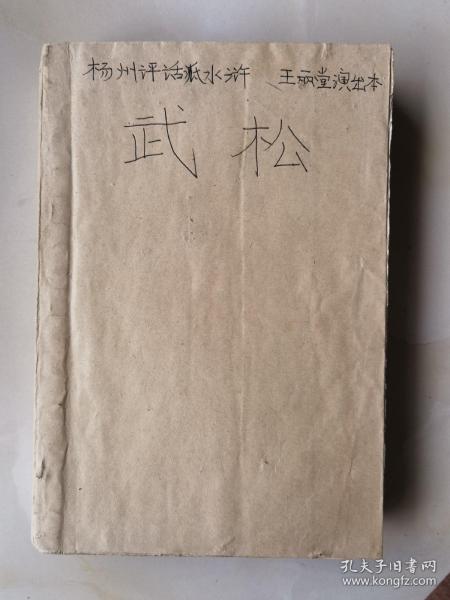 杨州评话派水浒 王丽堂演出本
武松
孔夫子旧书网
www.kongfz.com